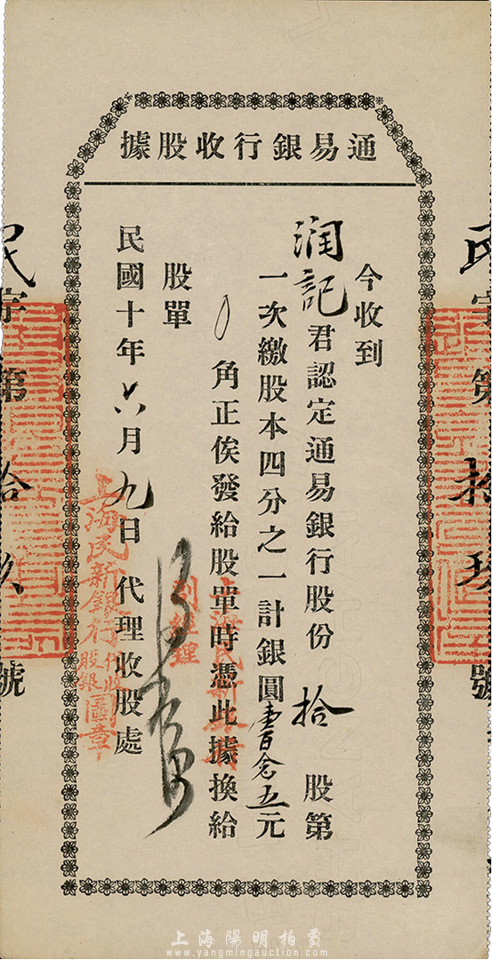 通易銀行收股據
今收到
润記君認定通易銀行股份拾股第
一次繳股本四分之一計銀圓壹百念五元
角正俟發給股單時憑此據換給
股單
民國十年六月九日代理收股處
上海民新銀行代收股銀圖章
副經理
民字第拾玖號
民字第拾玖號
上海陽明拍賣
www.yangmingauction.com